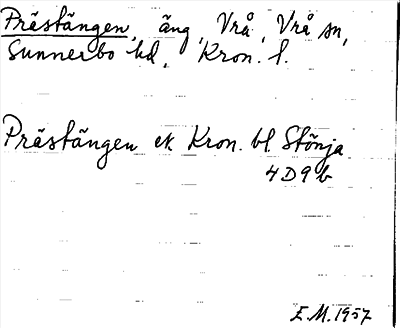 Prästängen, äng, Vrå, Vrå sn,
Sunnerbo hd, Kron. l.
Prästängen ek. Kron. bl. Stönja
4D9b
E.M. 1957